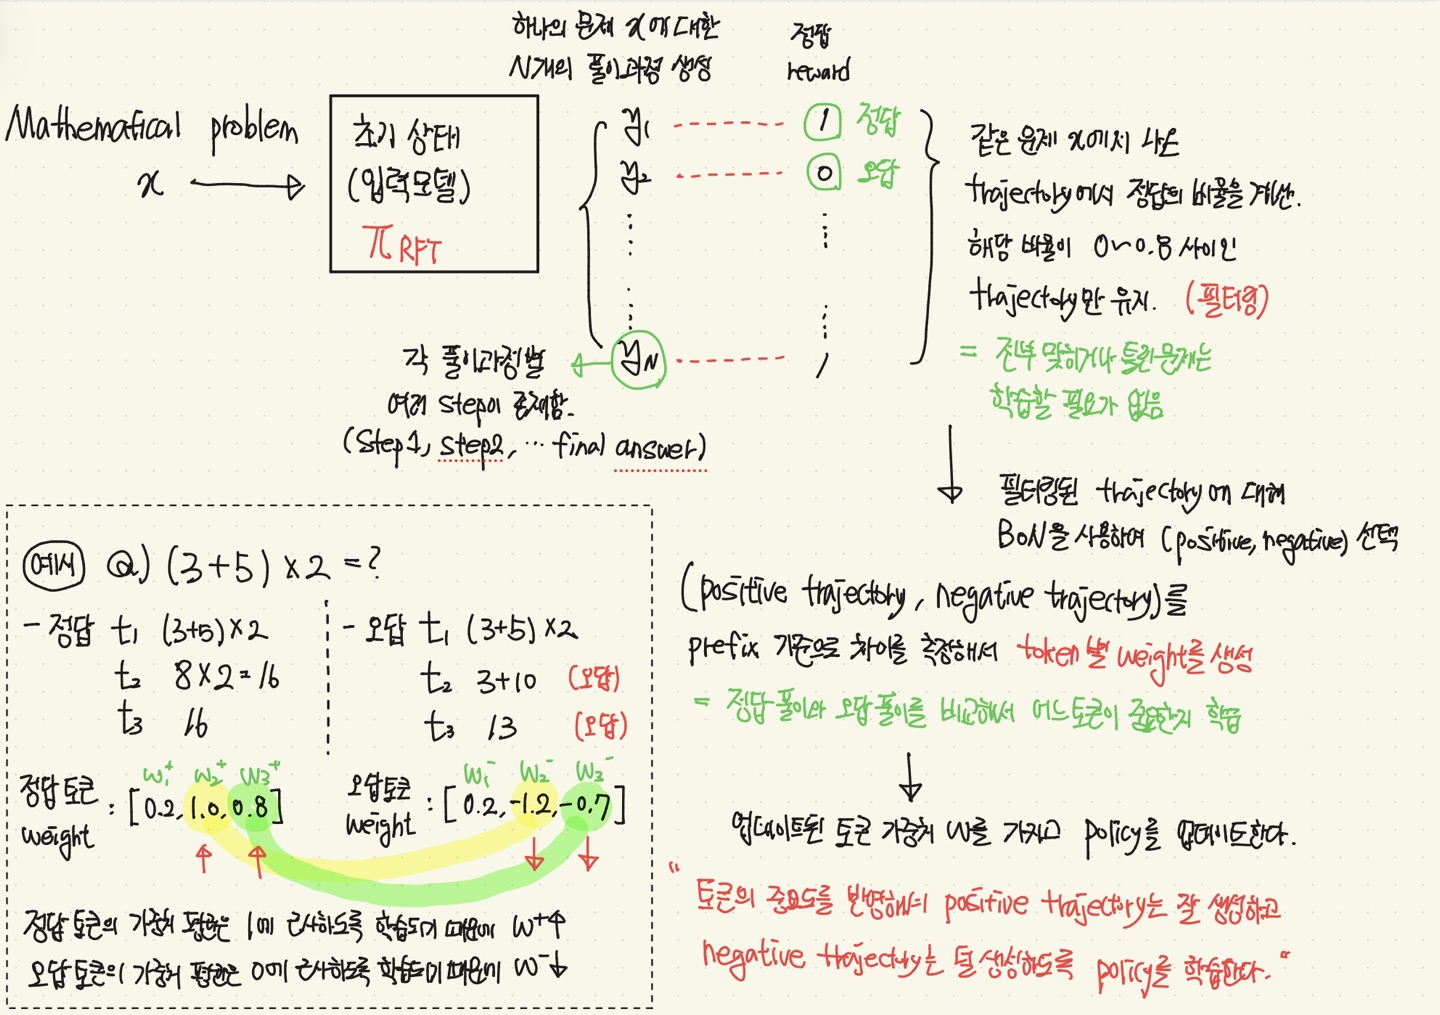 하나의 문제 x에 대한
N개의 풀이과정 생성
정답
reward
Mathematical problem
x
초기 상태
(입력모델)
π RFT
y₁
1 정답
y₂
0 오답
yN
각 풀이과정별
여러 step이 존재함.
(Step1, step2, … final answer)
같은 문제 x에서 나온
trajectory에서 정답의 비율을 계산.
해당 비율이 0~0.8 사이인
trajectory만 유지. (필터링)
= 전부 맞히거나 틀린문제는
학습할 필요가 없음
필터링된 trajectory에 대해
BoN을 사용하여 (positive, negative) 선택
(positive trajectory, negative trajectory)를
prefix 기준으로 차이를 측정해서 token별 weight를 생성
= 정답풀이와 오답풀이를 비교해서 어느토큰이 중요한지 학습
업데이트된 토큰 가중치 w를 가지고 policy를 업데이트한다.
"토큰의 중요도를 반영해서 positive trajectory는 잘 생성하고
negative trajectory는 덜 생성하도록 policy를 학습한다."
예시 Q.) (3+5)×2 = ?
- 정답 t₁ (3+5)×2
t₂ 8×2=16
t₃ 16
- 오답 t₁ (3+5)×2
t₂ 3+10 (오답)
t₃ 13 (오답)
w₁⁺ w₂⁺ w₃⁺
정답토큰
weight : [0.2, 1.0, 0.8]
w₁⁻ w₂⁻ w₃⁻
오답토큰
weight : [0.2, -1.2, -0.7]
정답토큰의 가중치 평균은 1에 근사하도록 학습되기 때문에 w⁺↑
오답토큰의 가중치 평균은 0에 근사하도록 학습되기 때문에 w⁻↓